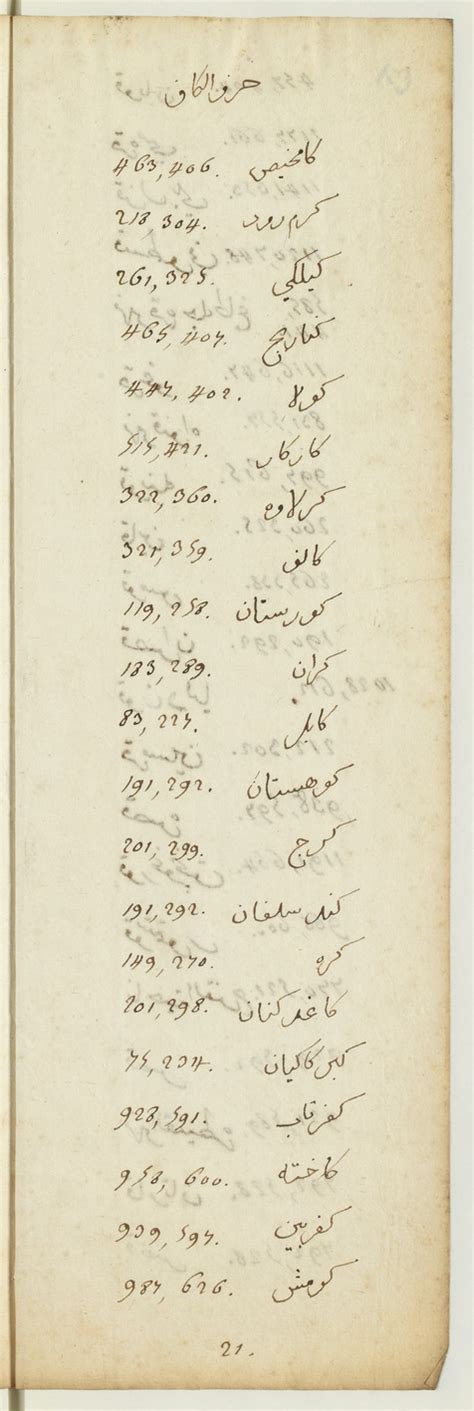 حرف الكاف
كامخيص 463,406.
كرم رود 218,304.
كيلكي 261,325.
كنارج 465,407.
كولا 447,402.
كاركار 515,421.
كرلاوه 322,360.
كالف 321,359.
كورستان 119,258.
كران 183,289.
كابل 83,227.
كوهستان 191,292.
كرج 201,299.
كندسلفان 191,292.
كره 149,270.
كاغدكنان 201,298.
كبركاكيان 75,234.
كفرتاب 928,591.
كاخته 958,600.
كفربين 939,597.
كومش 987,626.
21.